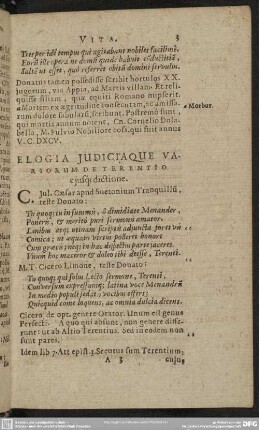 VITA. 3
Tres per id tempus qui agitabant nobiles facilimè,
Eorũ ille opera ne domũ quidẽ habuit cõductitiã,
Saltẽ ut esset, quò referret obitũ domini servulus.
Donatus tamen possedisse scribit hortulos XX.
jugerum, via Appia, ad Martis villam. Et reli-
quisse filiam, quæ equiti Romano nupserit.
*Mortem ex ægritudine consecutam, ac amissa-
rum dolore fabularũ, scribunt. Postremò sunt,
qui mortis annum notent, Cn. Cornelio Dola-
bella, M. Fulvio Nobiliore coss. qui fuit annus
V. C. DXCV.
* Morbur.
ELOGIA JUDICIAQUE VA-
RIORUM DE TERENTIO
ejusq; dictione.
C. Jul. Cæsar apud Suetonium Tranquillũ,
teste Donato:
Tu quoq; tu in summis, ô dimidiate Menander,
Poneris, & meritò puri sermonis amator.
Lenibus atq; utinam scriptis adjuncta foret vis
Comica; ut æquato virtus polleret honore
Cum græcis neq; in hac despectus parte jaceres.
Unum hoc maceror & doleo tibi deesse, Terenti.
M. T. Cicero Limone, teste Donato:
Tu quoq; qui solus lecto sermone, Terenti,
Conversum expressumq; latina voce Menandrũ
In medio populi sedatis vocibus offers;
Quicquid come loquens, ac omnia dulcia dicens.
Cicero de opt. genere Orator. Unum est genus
Perfecti. A quo qui absunt, non genere diffe-
runt: ut ab Altio Terentius. Sed in eodem non
sunt pares.
Idem lib. 7. Att epist. 3. Secutus sum Terentium,
A 3 cuju,